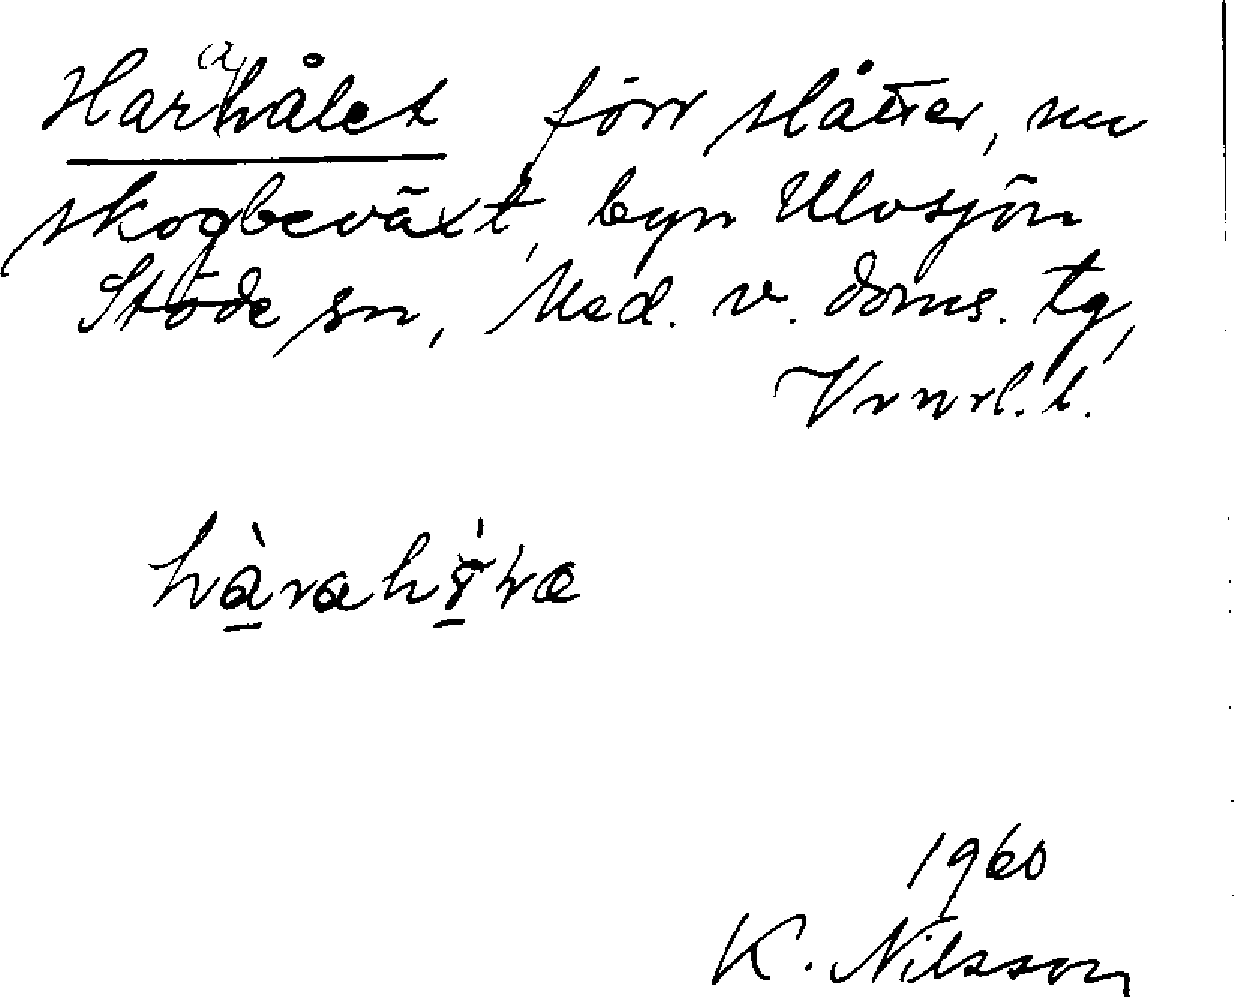 Harahålet förr slåtter, nu
skogbeväxt, byn Ulvsjön
Stöde sn, Med. v. doms. tg,
Vrnrl. l.
1960
K. Nilsson